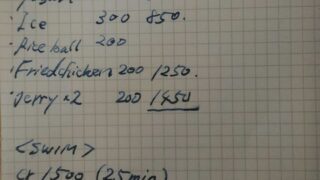 · Ice 300 850.
· Rice ball 200
· Friedchicken 200 1250.
· Jerry ×2 200 1450
<SWIM>
Cr 1500 (25min)